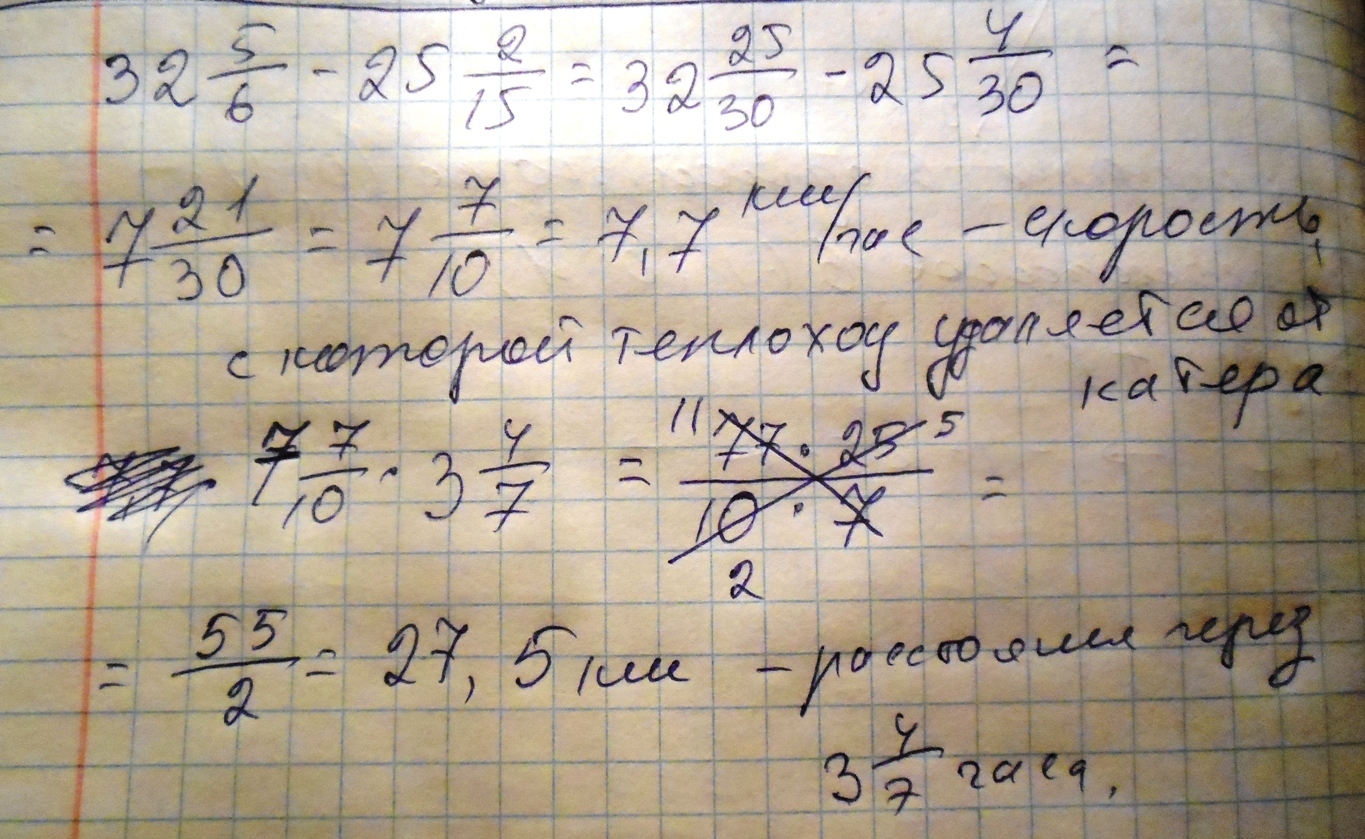 32 5/6 - 25 2/15 = 32 25/30 - 25 4/30 =
= 7 21/30 = 7 7/10 = 7,7 км/час – скорость,
с которой теплоход удаляется от
катера
7 7/10 · 3 4/7 = 11 77 · 25 5 / 10 · 7 =
2
= 55/2 = 27,5 км – расстояния через
3 4/7 часа.